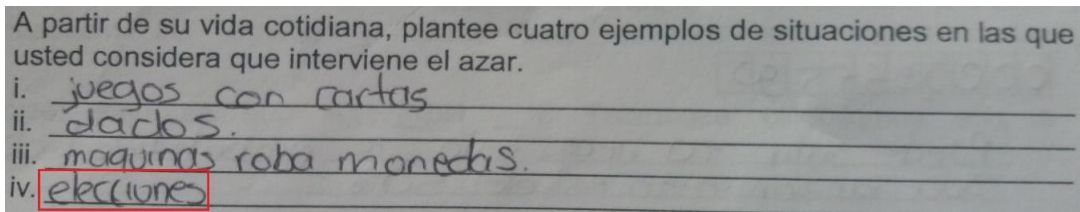 A partir de su vida cotidiana, plantee cuatro ejemplos de situaciones en las que
usted considera que interviene el azar.
i. juegos con cartas
ii. dados.
iii. maquinas roba monedas.
iv. elecciones